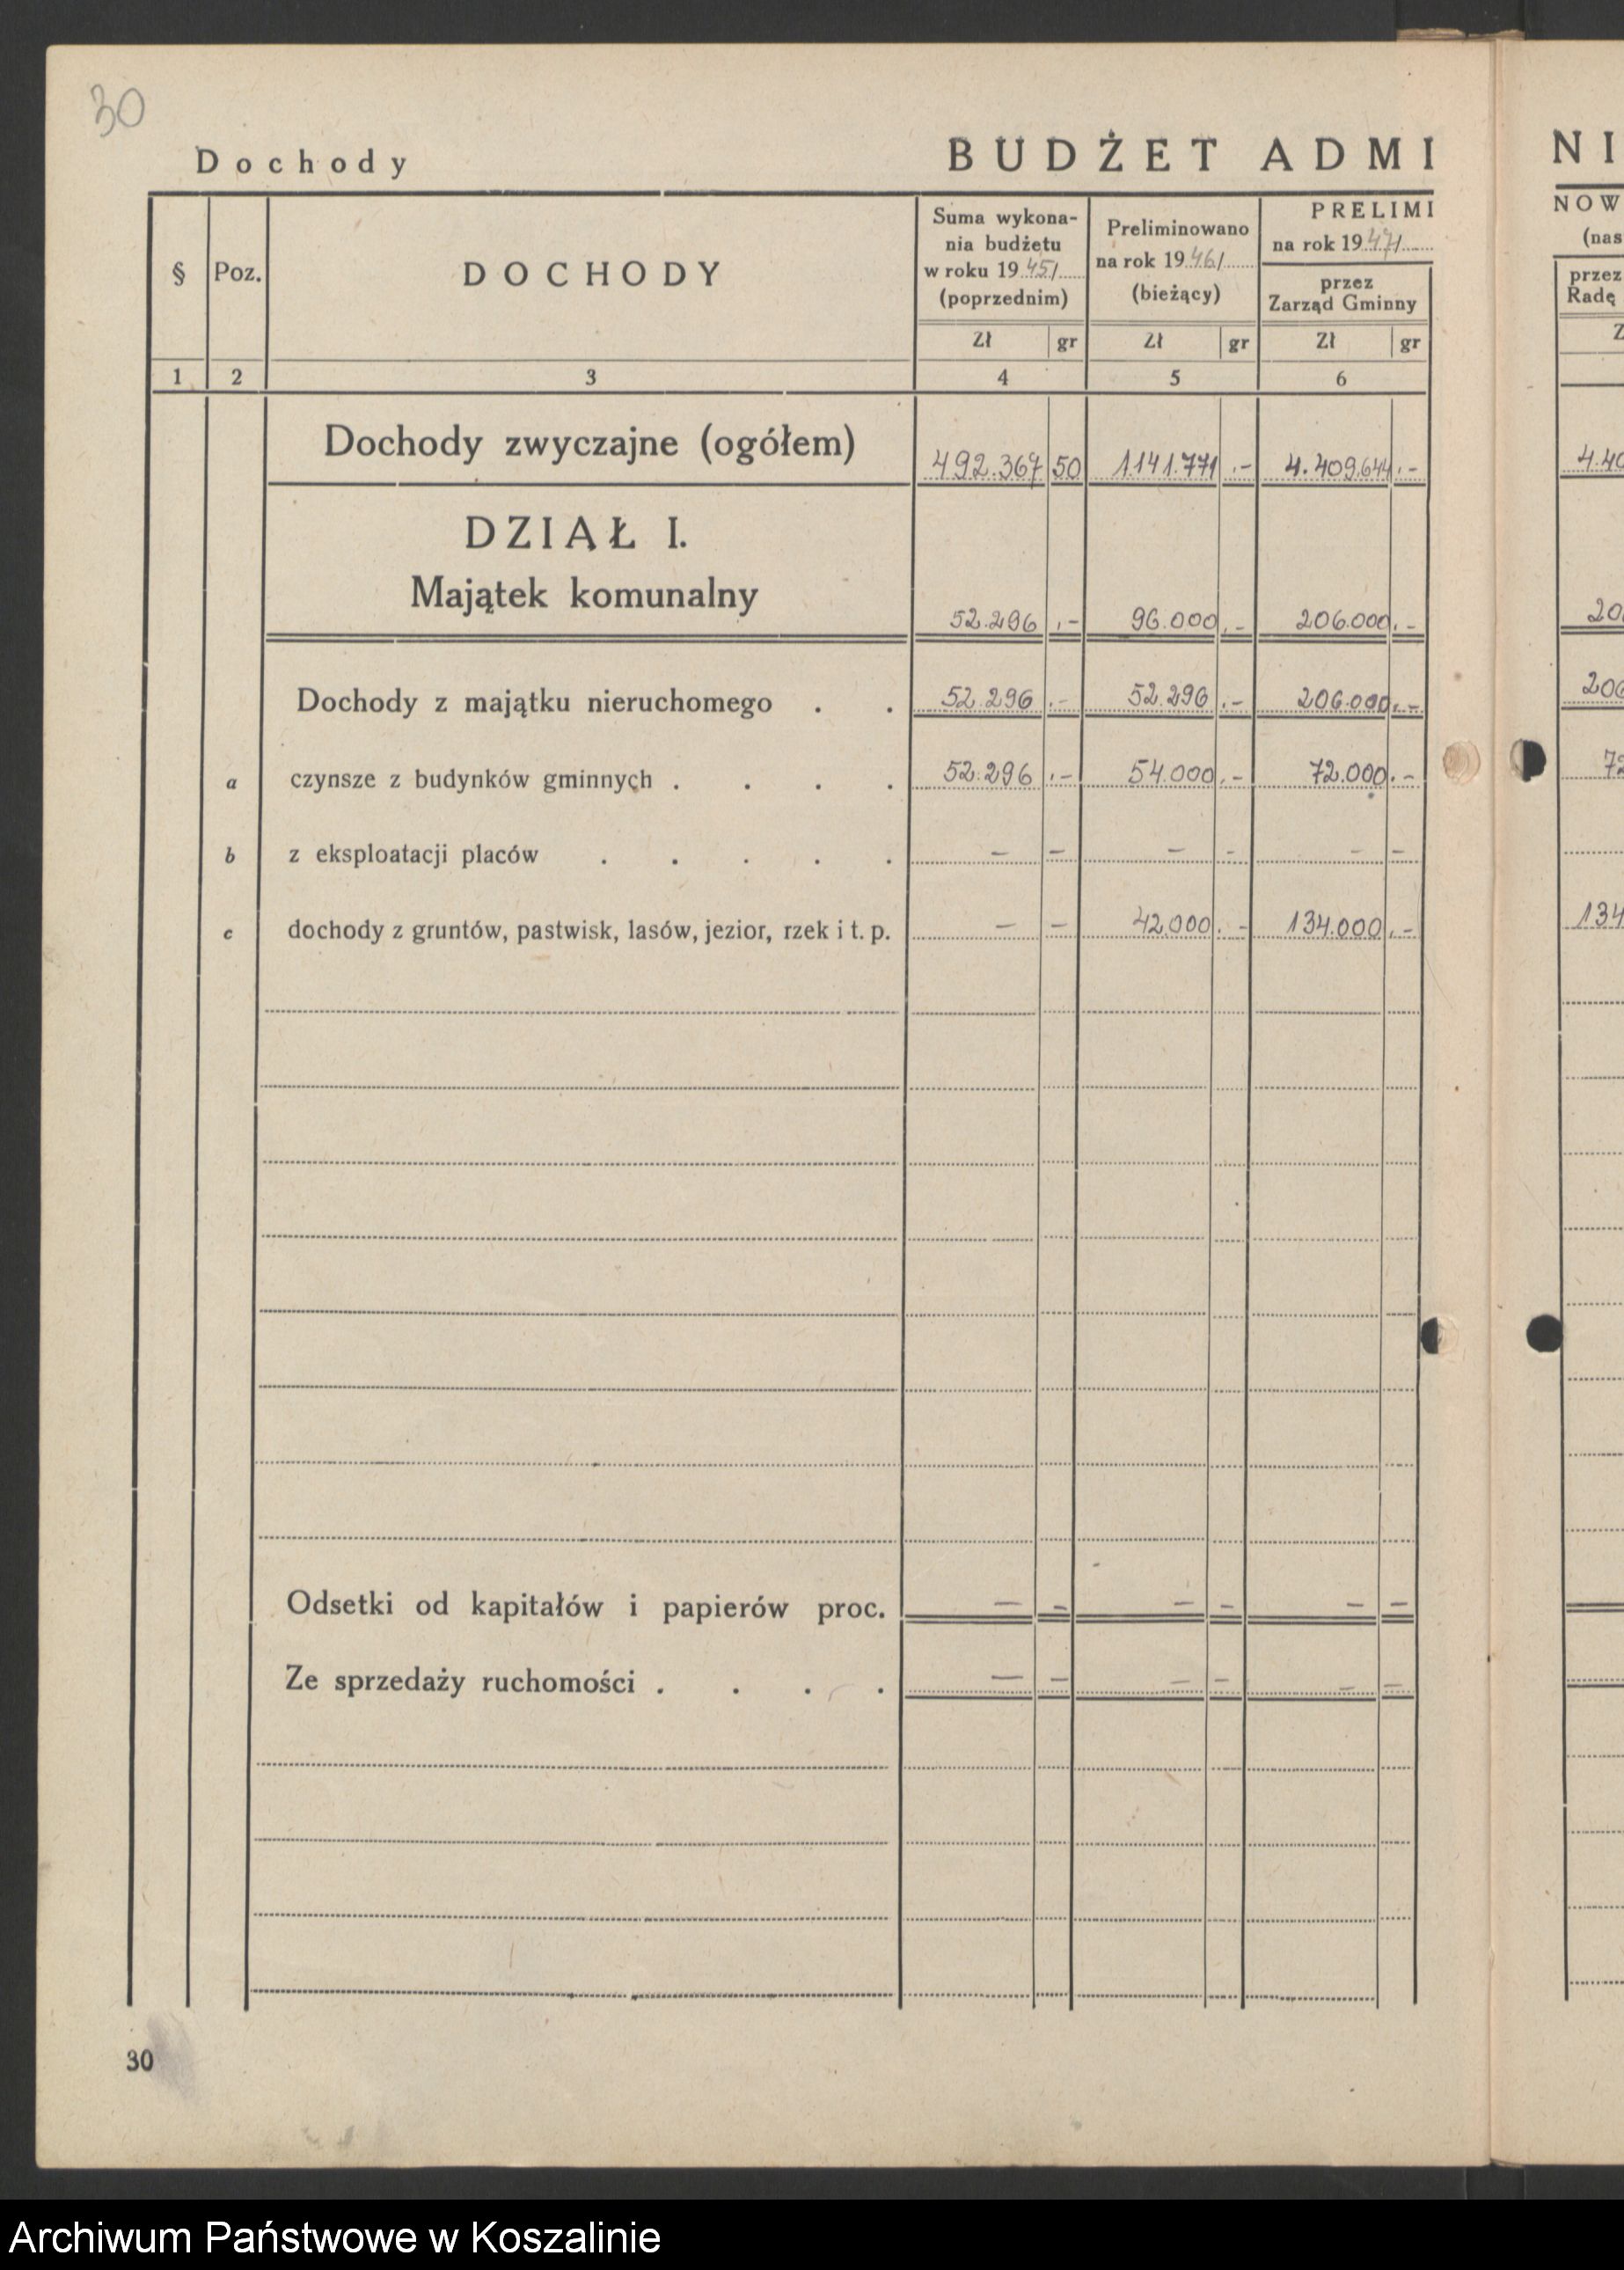 30
Dochody
BUDŻET ADMI
NI
§ Poz. DOCHODY
Suma wykona-
nia budżetu
w roku 1945/
(poprzednim)
Preliminowano
na rok 1946/
(bieżący)
PRELIMI
na rok 1947/
przez
Zarząd Gminny
NOW
(nas
przez
Radę
Zł gr Zł gr Zł gr Z
1 2 3 4 5 6
Dochody zwyczajne (ogółem) 492.367 50 1.141.771 .- 4.409.644 .- 4.40
DZIAŁ I.
Majątek komunalny 52.296 .- 96.000 .- 206.000 .- 20
Dochody z majątku nieruchomego . . 52.296 .- 52.296 .- 206.000 .- 206
a czynsze z budynków gminnych . . . . 52.296 .- 54.000 .- 72.000 .- 72
b z eksploatacji placów . . . . . — — — — — —
c dochody z gruntów, pastwisk, lasów, jezior, rzek i t. p. — — 42.000 .- 134.000 .- 134
Odsetki od kapitałów i papierów proc. — — — — — —
Ze sprzedaży ruchomości . . . . — — — — — —
30
Archiwum Państwowe w Koszalinie